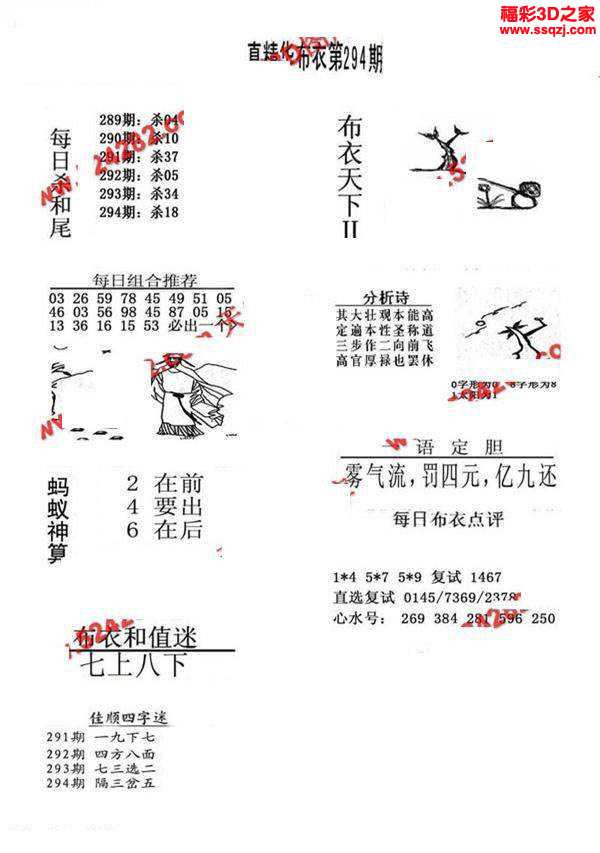 福彩3D之家
www.ssqzj.com
直精华布衣第294期
每日杀和尾
289期：杀04
290期：杀10
291期：杀37
292期：杀05
293期：杀34
294期：杀18
布衣天下II
每日组合推荐
03 26 59 78 45 49 51 05
46 03 56 98 45 87 05 15
13 36 16 15 53 必出一个
分析诗
其大壮观本能高
定遍本性圣称道
三步作二向前飞
高官厚禄也罢休
0字形为0 8字形为8
1太阳为1
一语定胆
雾气流,罚四元,亿九还
蚂蚁神算
2 在前
4 要出
6 在后
每日布衣点评
1*4 5*7 5*9 复试 1467
直选复试 0145/7369/2378
心水号: 269 384 281 596 250
布衣和值迷
七上八下
佳顺四字迷
291期 一九下七
292期 四方八面
293期 七三选二
294期 隔三岔五